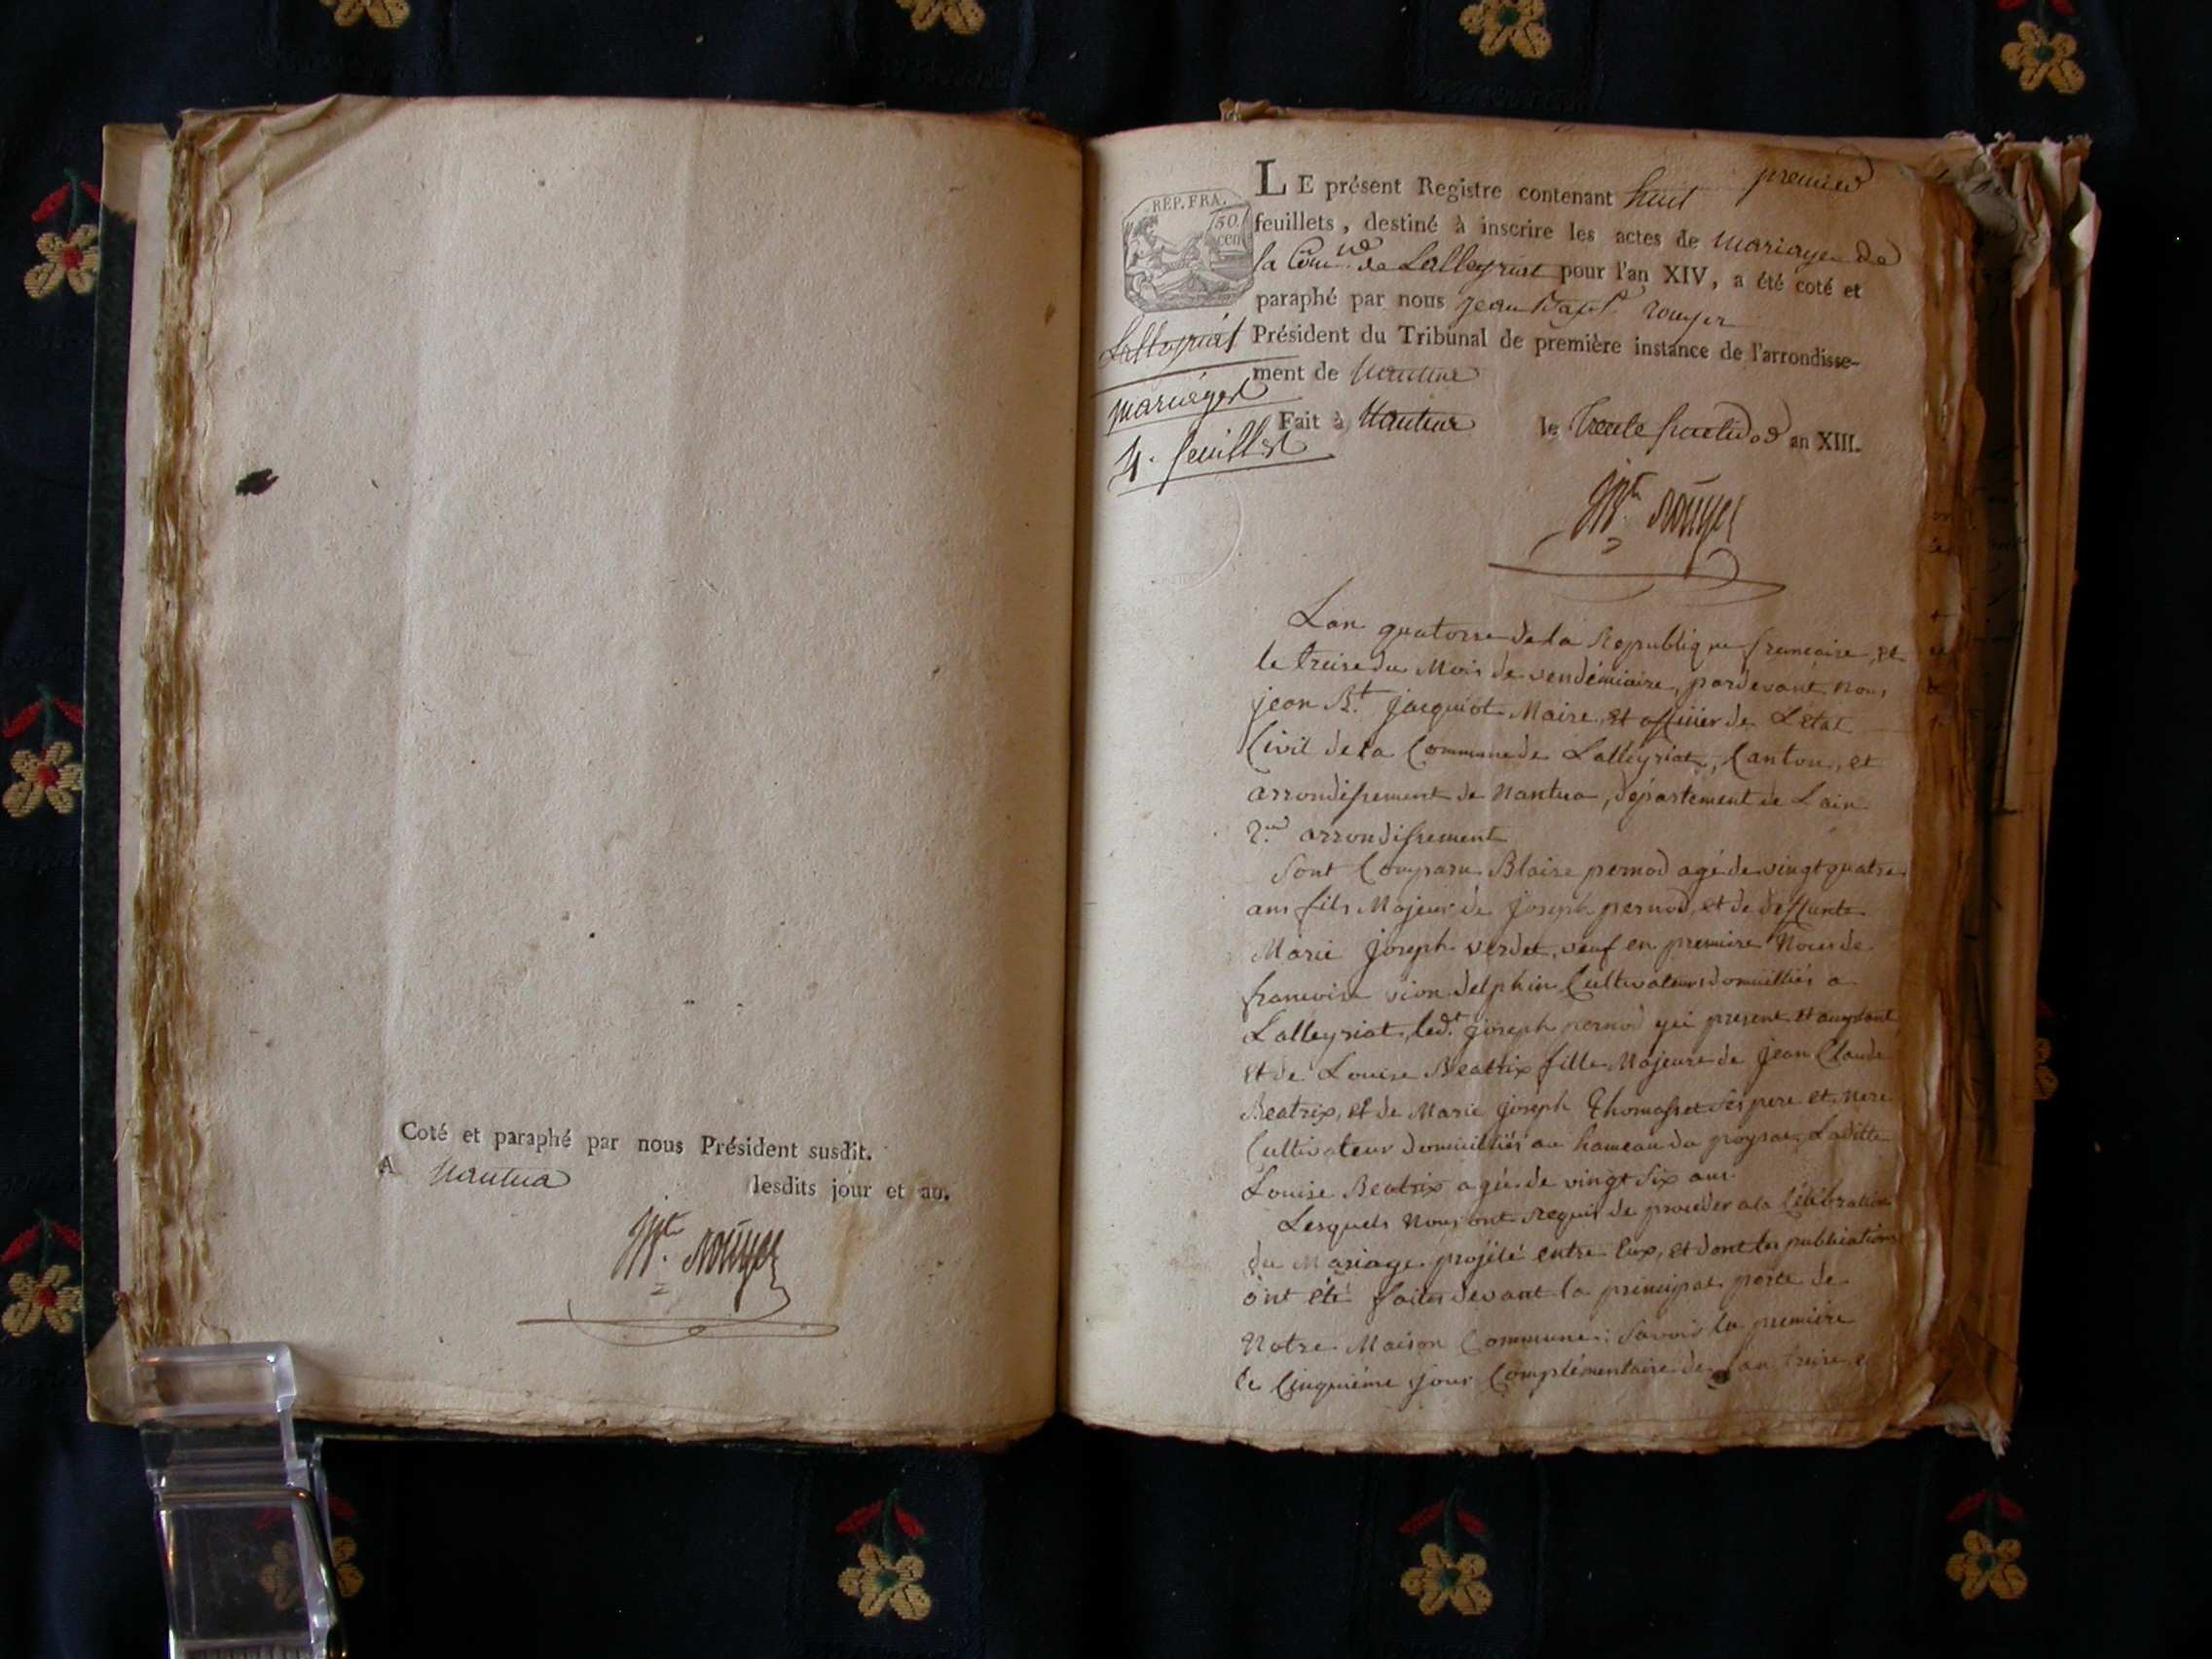 Coté et paraphé par nous Président susdit.
A Nantua lesdits jour et an.
JBte Rouyer
premier
LE présent Registre contenant huit
feuillets, destiné à inscrire les actes de mariages de
la Comne de Lalleyriat pour l'an XIV, a été coté et
paraphé par nous Jean Bapt Rouyer
Président du Tribunal de première instance de l'arrondisse-
ment de Nantua
Fait à Nantua le trente fructidor an XIII.
JBte Rouyer
REP. FRA.
50
cen
Lalleyriat
mariages
4. feuillet
Lan quatorse de la Republique francaise, et
le treise du Mois de vendémiaire, pardevant Nous
jean Bt jacquiot Maire, et officier de Létat
Civil de la Commune de Lalleyriat, Canton, et
arrondissement de Nantua, département de Lain
2.me arrondissement
Sont Comparu Blaise pernod agé de vingt quatre
ans fils Majeur de joseph pernod, et de deffunte
Marie joseph verdet, veuf en premiere Noces de
francoise vion delphin Cultivateurs domicilliés a
Lalleyriat, ledt joseph pernod ycÿ present et
Et de Louise Beatrix fille Majeure de jean Claude
Beatrix, et de Marie joseph Thomasset ses pere et mere
Cultivateur domicilliés au hameau du poysat, Laditte
Louise Beatrix agée de vingt six ans.
Lesquels Nous ont Requis de proceder a la Célébration
du Mariage projété entre Eux, et dont les publications
ont été faites devant la principal porte de
Notre Maison Commune; Savoir la premiere
le Cinquième jour Complémentaire de lan treise et